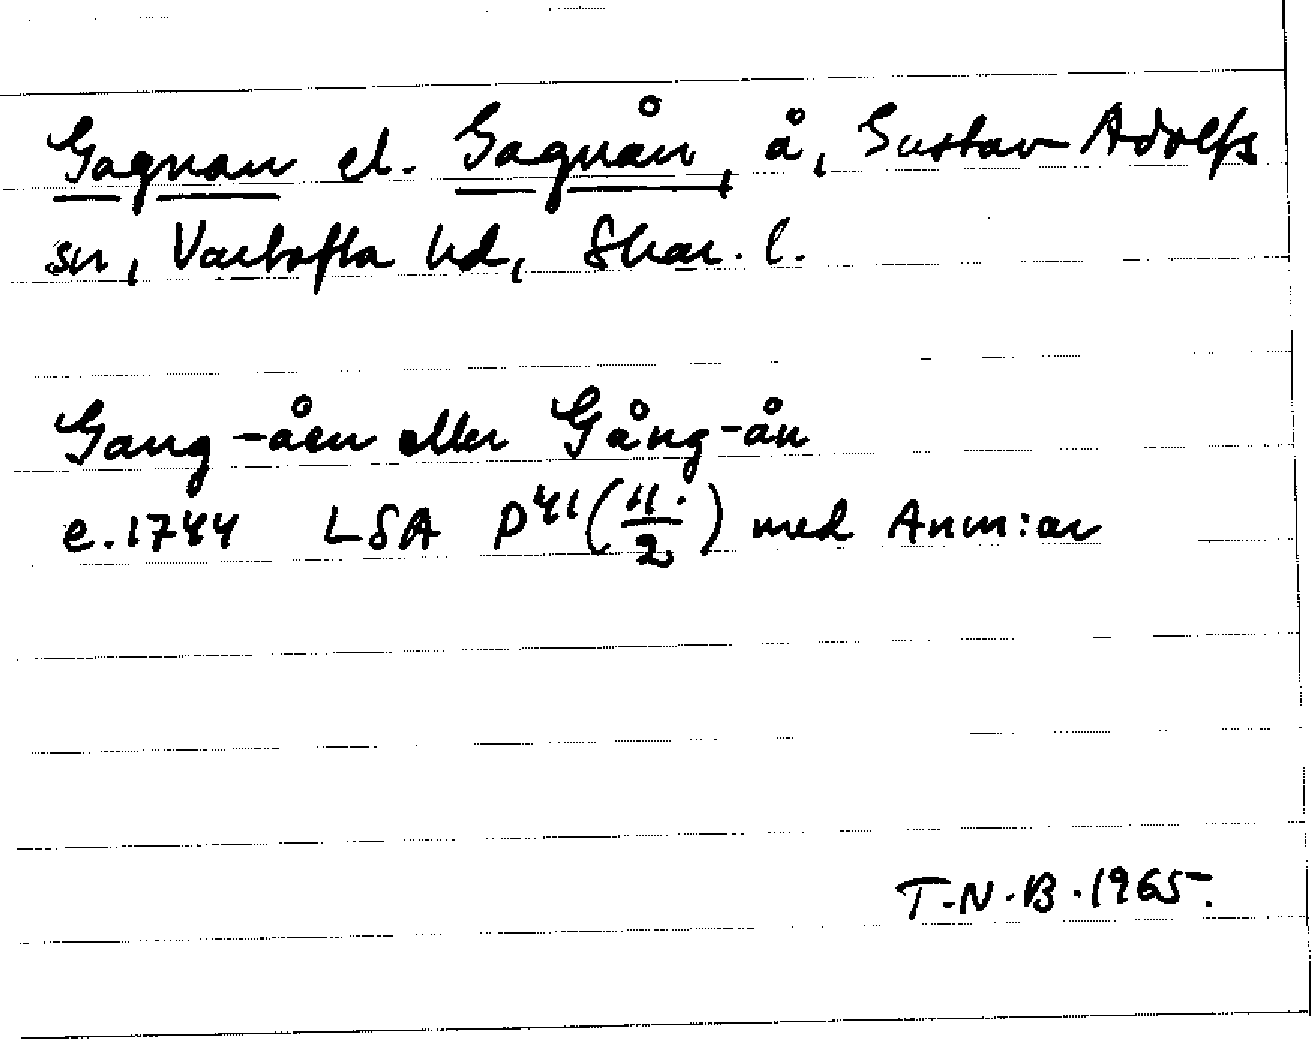 Gagnan el. Gagnån, å, Gustav Adolfs
sn, Vartofta hd, Skar. l.
Gang-åen eller Gång-ån
e. 1744 LSA P41 (11./2) med Anm:ar
T.N.B. 1965.